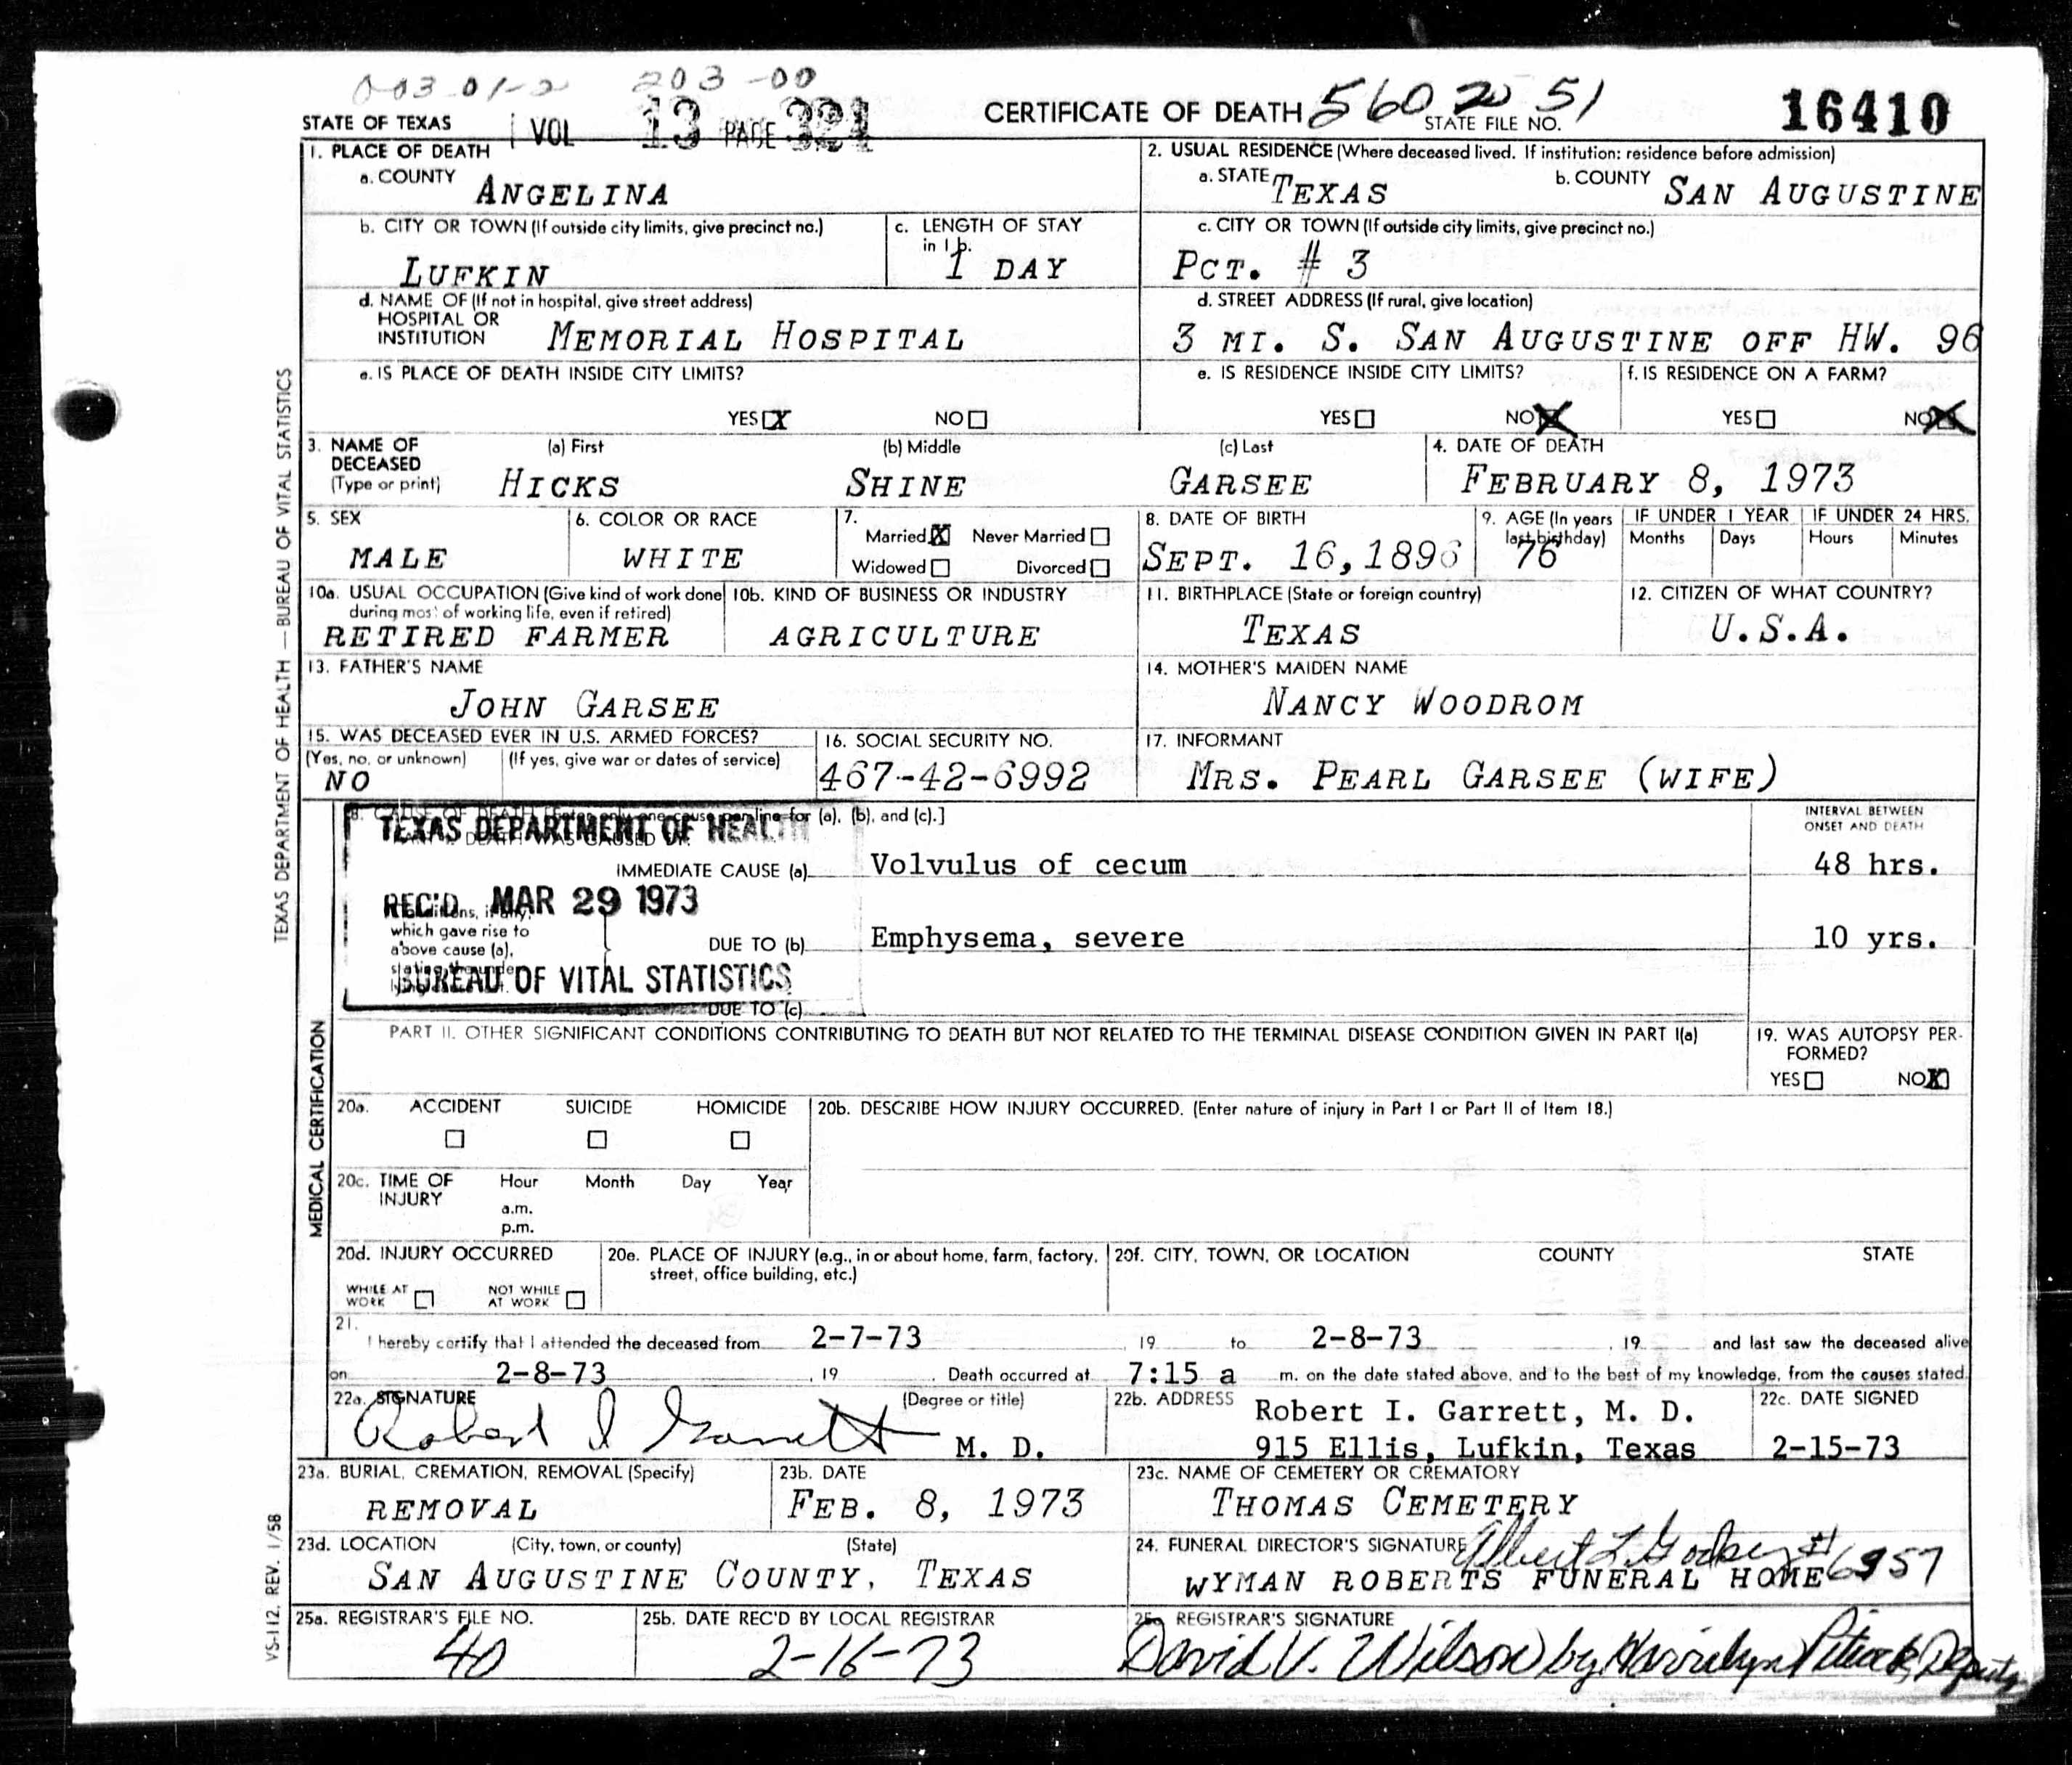 003 01-2 203-00
STATE OF TEXAS VOL 13 PAGE 321 CERTIFICATE OF DEATH 560 20 51 STATE FILE NO. 16410
1. PLACE OF DEATH
a. COUNTY ANGELINA
2. USUAL RESIDENCE (Where deceased lived. If institution: residence before admission)
a. STATE TEXAS b. COUNTY SAN AUGUSTINE
b. CITY OR TOWN (If outside city limits, give precinct no.)
LUFKIN
c. LENGTH OF STAY
in 1 b.
1 DAY
c. CITY OR TOWN (If outside city limits, give precinct no.)
PCT. # 3
d. NAME OF (If not in hospital, give street address)
HOSPITAL OR
INSTITUTION MEMORIAL HOSPITAL
d. STREET ADDRESS (If rural, give location)
3 MI. S. SAN AUGUSTINE OFF HW. 96
e. IS PLACE OF DEATH INSIDE CITY LIMITS?
YES X NO
e. IS RESIDENCE INSIDE CITY LIMITS?
YES NO X
f. IS RESIDENCE ON A FARM?
YES NO X
3. NAME OF
DECEASED
(Type or print)
(a) First HICKS
(b) Middle SHINE
(c) Last GARSEE
4. DATE OF DEATH
FEBRUARY 8, 1973
5. SEX
MALE
6. COLOR OR RACE
WHITE
7.
Married X Never Married
Widowed Divorced
8. DATE OF BIRTH
SEPT. 16, 1896
9. AGE (In years
last birthday)
76
IF UNDER 1 YEAR
Months Days
IF UNDER 24 HRS.
Hours Minutes
10a. USUAL OCCUPATION (Give kind of work done
during most of working life, even if retired)
RETIRED FARMER
10b. KIND OF BUSINESS OR INDUSTRY
AGRICULTURE
11. BIRTHPLACE (State or foreign country)
TEXAS
12. CITIZEN OF WHAT COUNTRY?
U.S.A.
13. FATHER'S NAME
JOHN GARSEE
14. MOTHER'S MAIDEN NAME
NANCY WOODROM
15. WAS DECEASED EVER IN U.S. ARMED FORCES?
(Yes, no, or unknown) (If yes, give war or dates of service)
NO
16. SOCIAL SECURITY NO.
467-42-6992
17. INFORMANT
MRS. PEARL GARSEE (WIFE)
18. CAUSE OF DEATH [Enter only one cause per line for (a), (b), and (c).]
PART I. DEATH WAS CAUSED BY:
TEXAS DEPARTMENT OF HEALTH
REC'D MAR 29 1973
BUREAU OF VITAL STATISTICS
INTERVAL BETWEEN
ONSET AND DEATH
IMMEDIATE CAUSE (a) Volvulus of cecum 48 hrs.
Conditions, if any,
which gave rise to
above cause (a),
stating the under-
DUE TO (b) Emphysema, severe 10 yrs.
DUE TO (c)
PART II. OTHER SIGNIFICANT CONDITIONS CONTRIBUTING TO DEATH BUT NOT RELATED TO THE TERMINAL DISEASE CONDITION GIVEN IN PART I(a)
19. WAS AUTOPSY PER-
FORMED?
YES NO X
20a. ACCIDENT SUICIDE HOMICIDE
20b. DESCRIBE HOW INJURY OCCURRED. (Enter nature of injury in Part I or Part II of Item 18.)
20c. TIME OF
INJURY
Hour Month Day Year
a.m.
p.m.
20d. INJURY OCCURRED
WHILE AT
WORK
NOT WHILE
AT WORK
20e. PLACE OF INJURY (e.g., in or about home, farm, factory,
street, office building, etc.)
20f. CITY, TOWN, OR LOCATION COUNTY STATE
21.
I hereby certify that I attended the deceased from 2-7-73, 19 to 2-8-73, 19 and last saw the deceased alive
on 2-8-73, 19. Death occurred at 7:15 a m. on the date stated above, and to the best of my knowledge, from the causes stated.
22a. SIGNATURE (Degree or title)
Robert I Garrett M. D.
22b. ADDRESS Robert I. Garrett, M. D.
915 Ellis, Lufkin, Texas
22c. DATE SIGNED
2-15-73
23a. BURIAL, CREMATION, REMOVAL (Specify)
REMOVAL
23b. DATE
FEB. 8, 1973
23c. NAME OF CEMETERY OR CREMATORY
THOMAS CEMETERY
23d. LOCATION (City, town, or county) (State)
SAN AUGUSTINE COUNTY, TEXAS
24. FUNERAL DIRECTOR'S SIGNATURE Albert L. # 6957
WYMAN ROBERTS FUNERAL HOME
25a. REGISTRAR'S FILE NO.
40
25b. DATE REC'D BY LOCAL REGISTRAR
2-16-73
25c. REGISTRAR'S SIGNATURE
David V. Wilson by Deputy
TEXAS DEPARTMENT OF HEALTH — BUREAU OF VITAL STATISTICS
MEDICAL CERTIFICATION
VS-112, REV. 1/58